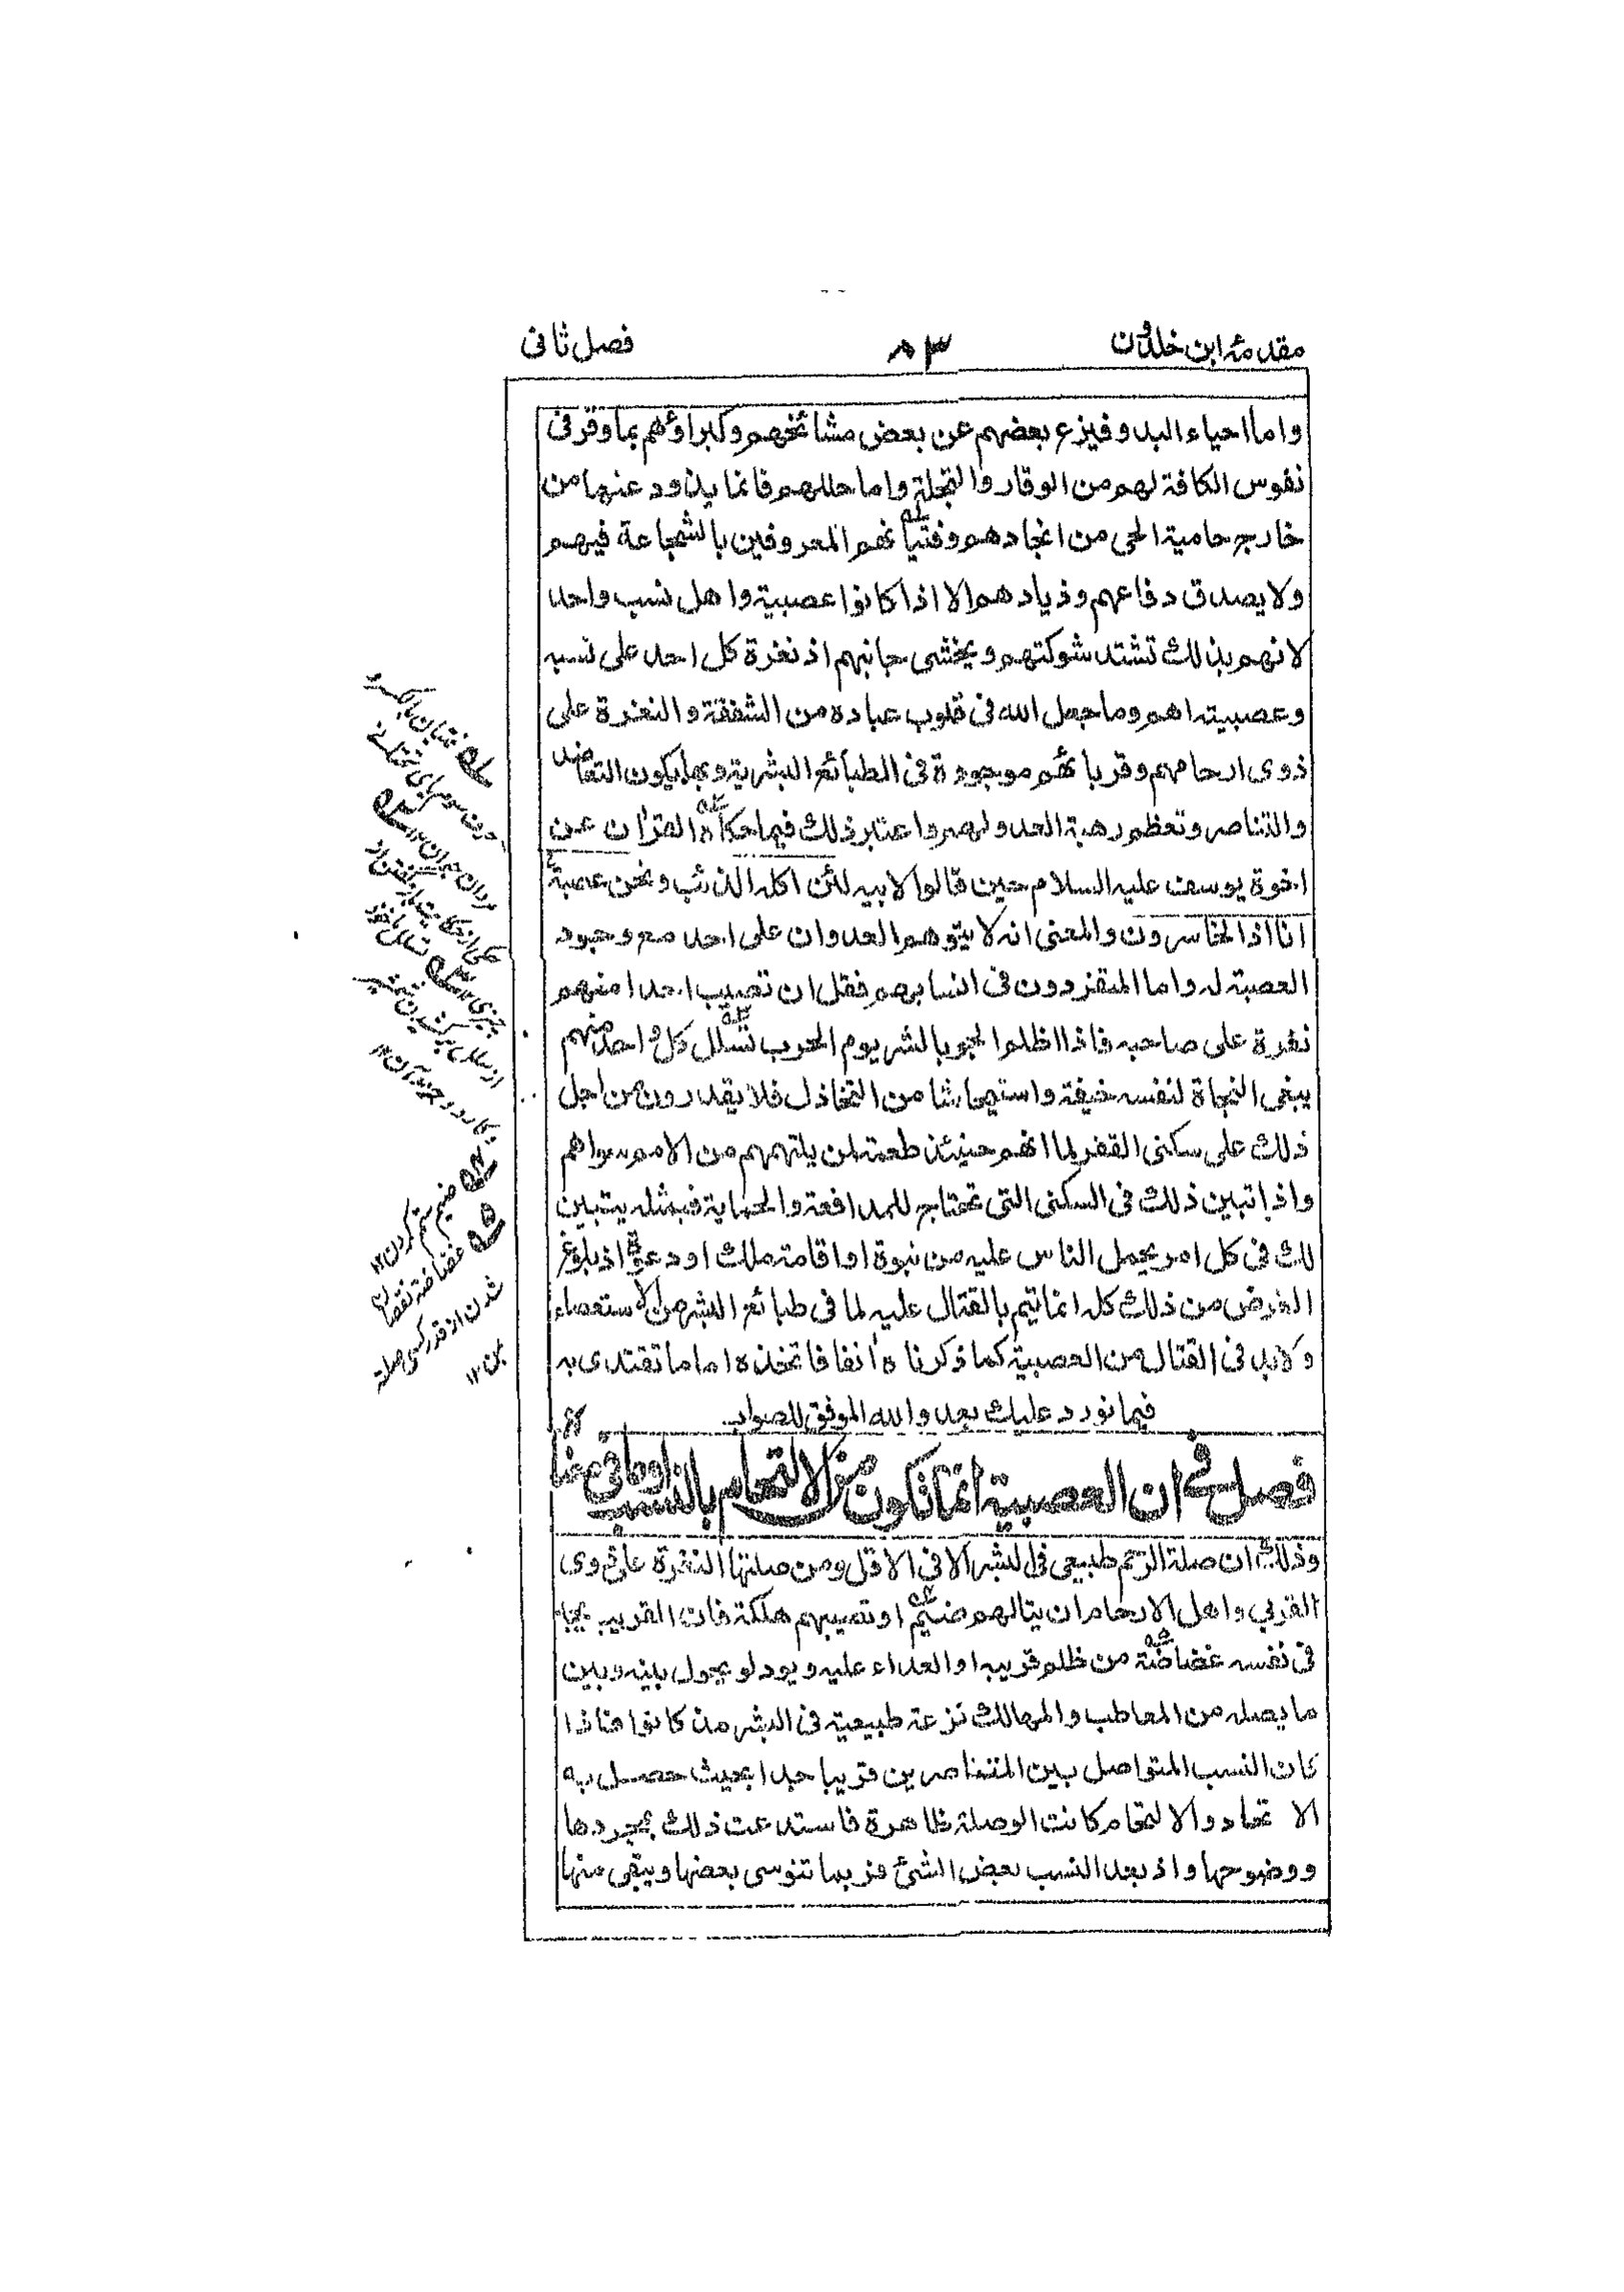 مقدمۂ ابن خلدون
۸۳
فصل ثانی
واما احیاء البدو فیزع بعضہم عن بعض مشائخہم وکبراؤہم بما وقر فی
نفوس الکافة لہم من الوقار والتجلة واما حللہم فانما یذاود عنہا من
خارج حامیة الحی من انجادہم وفتیانہم المعروفین بالشجاعة فیہم
ولا یصدق دفاعہم وذیادہم الا اذا کانوا عصبیة واہل نسب واحد
لانہم بذلک تشتد شوکتہم ویخشی جانبہم اذ نغرة کل احد علی نسبہ
وعصبیتہ اہم وما جعل اللہ فی قلوب عبادہ من الشفقة والنغرة علی
ذوی ارحامہم وقربائہم موجودة فی الطبائع البشریة وبہا یکون التعاضد
والتناصر وتعظم رہبة العدو لہم واعتبر ذلک فیما حکاہ القرآن عن
اخوة یوسف علیہ السلام حین قالوا لابیہ لئن اکلہ الذئب ونحن عصبة
انا اذا لخاسرون والمعنی انہ لا یتوہم العدوان علی احد مع وجود
العصبة لہ واما المتفردون فی انسابہم فقل ان تصیب احدا منہم
نغرة علی صاحبہ فاذا اظلم الجو بالشر یوم الحرب تسلل کل واحد منہم
یبغی النجاة لنفسہ خیفة واستیحاشا من التخاذل فلا یقدرون من اجل
ذلک علی سکنی القفر لما انہم حینئذ طعمة لمن یلتہمہم من الامم سواہم
واذا تبین ذلک فی السکنی التی تحتاج للمدافعة والحمایة فبمثلہ یتبین
لک فی کل امر یحمل الناس علیہ من نبوة او اقامة ملک او دعوة اذ بلوغ
الغرض من ذلک کلہ انما یتم بالقتال علیہ لما فی طبائع البشر من الاستعصاء
ولا بد فی القتال من العصبیة کما ذکرناہ آنفا فاتخذہ اماما تقتدی بہ
فیما نورد علیک بعد واللہ الموفق للصواب
فصل فی ان العصبیة انما تکون من الالتحام بالنسب او ما فی معناہ
وذلک ان صلة الرحم طبیعی فی البشر الا فی الاقل ومن صلتہا النغرة علی ذوی
القربی واہل الارحام ان ینالہم ضیم او تصیبہم ہلکة فان القریب یجد
فی نفسہ غضاضة من ظلم قریبہ او العداء علیہ ویود لو یحول بینہ وبین
ما یصلہ من المعاطب والمہالک نزعة طبیعیة فی البشر مذ کانوا فاذا
کان النسب المتواصل بین المتناصرین قریبا جدا بحیث حصل بہ
الاتحاد والالتحام کانت الوصلة ظاہرة فاستدعت ذلک بمجردہا
ووضوحہا واذ بعد النسب بعض الشئ فربما تنوسی بعضہا ویبقی منہا
ضیم ستم کردن ۱۲
غضاضة نقصان
شدن از قدر کسی صلة